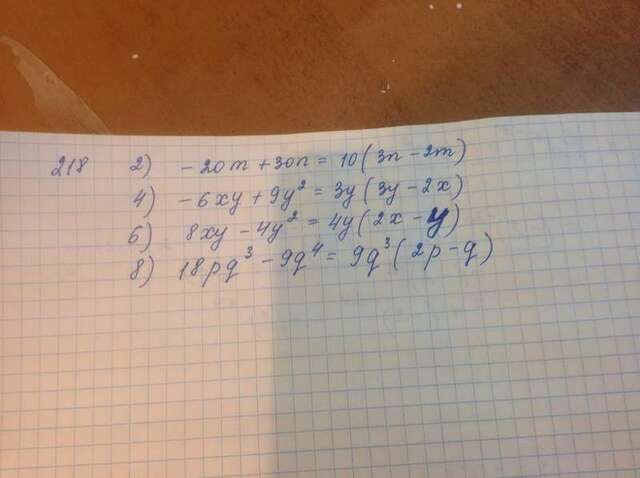 218 2) -20m + 30n = 10(3n - 2m)
4) -6xy + 9y² = 3y(3y - 2x)
6) 8xy - 4y² = 4y(2x - y)
8) 18pq³ - 9q⁴ = 9q³(2p - q)